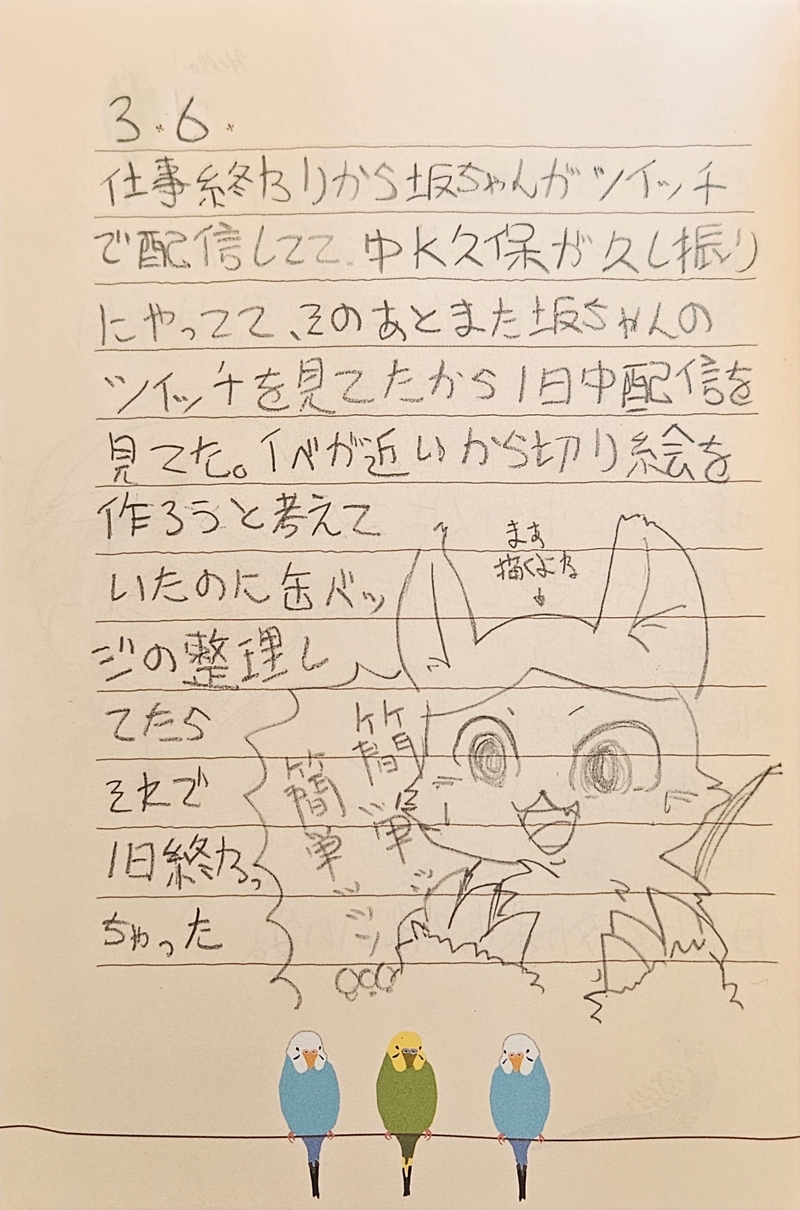 3.6.
仕事終わりから坂ちゃんがツイッチ
で配信してて、中大久保が久し振り
にやってて、そのあとまた坂ちゃんの
ツイッチを見てたから1日中配信を
見てた。イベが近いから切り絵を
作ろうと考えて
いたのに缶バッ
ジの整理し
てたら
それで
1日終わっ
ちゃった
まぁ
描くよね
↓
簡単ッ
簡単ッッ